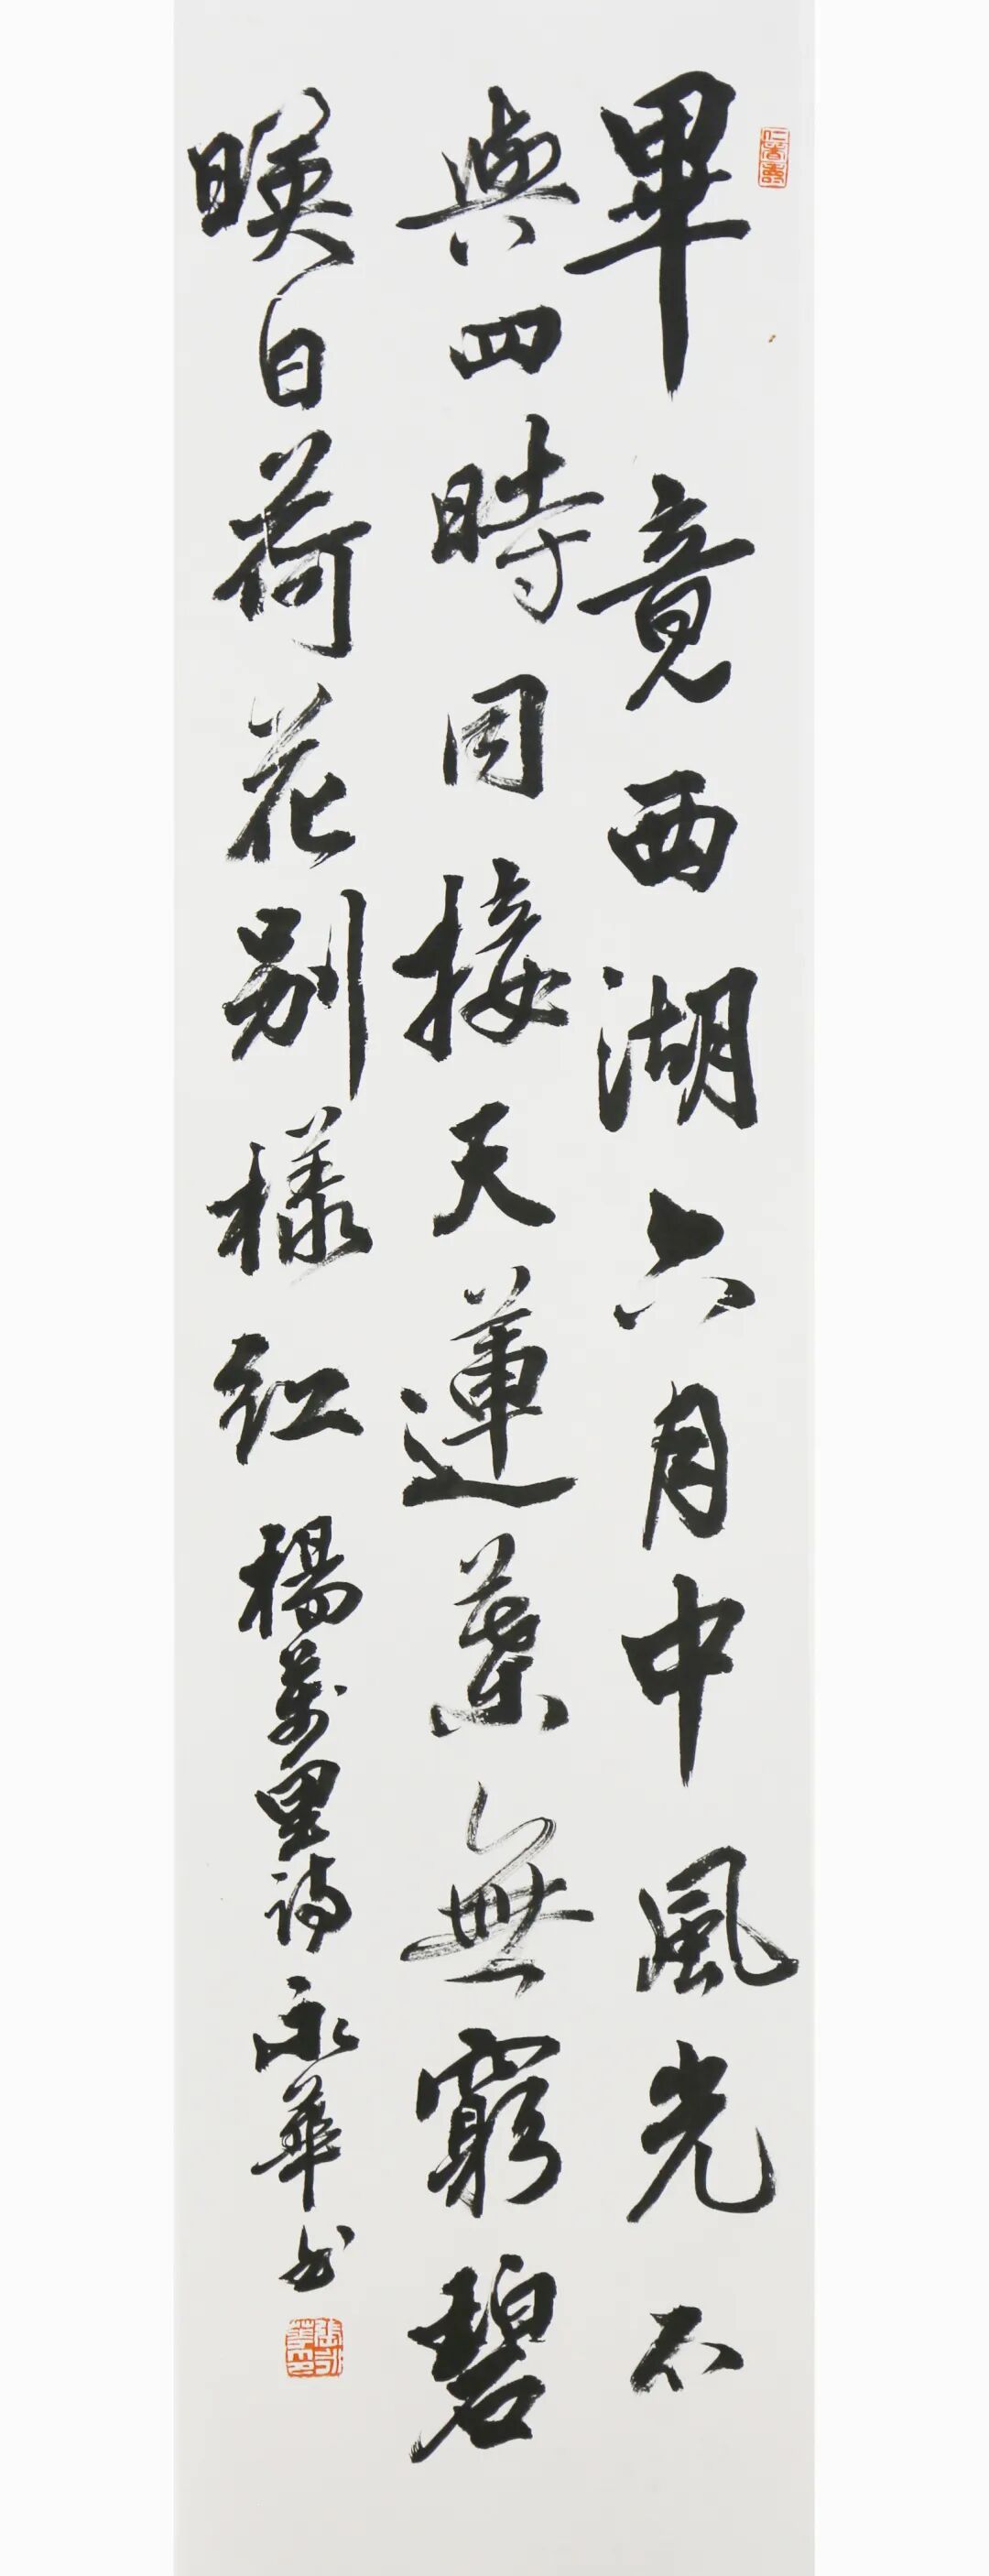 畢竟西湖六月中風光不
與四時同接天蓮葉無窮碧
暎日荷花别樣紅 楊萬里詩 永華书